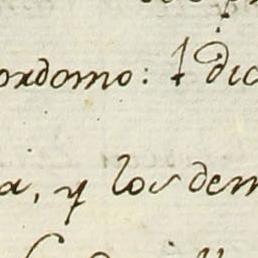 ordomo: † dic
a, y los dem